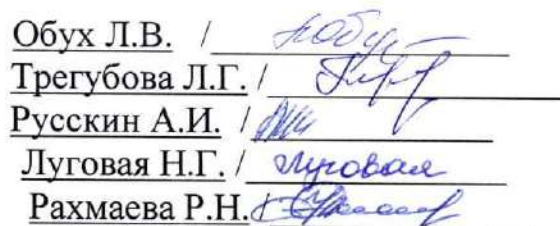 Обух Л.В. /
Трегубова Л.Г. /
Русскин А.И. /
Луговая Н.Г. / Луговая
Рахмаева Р.Н. /